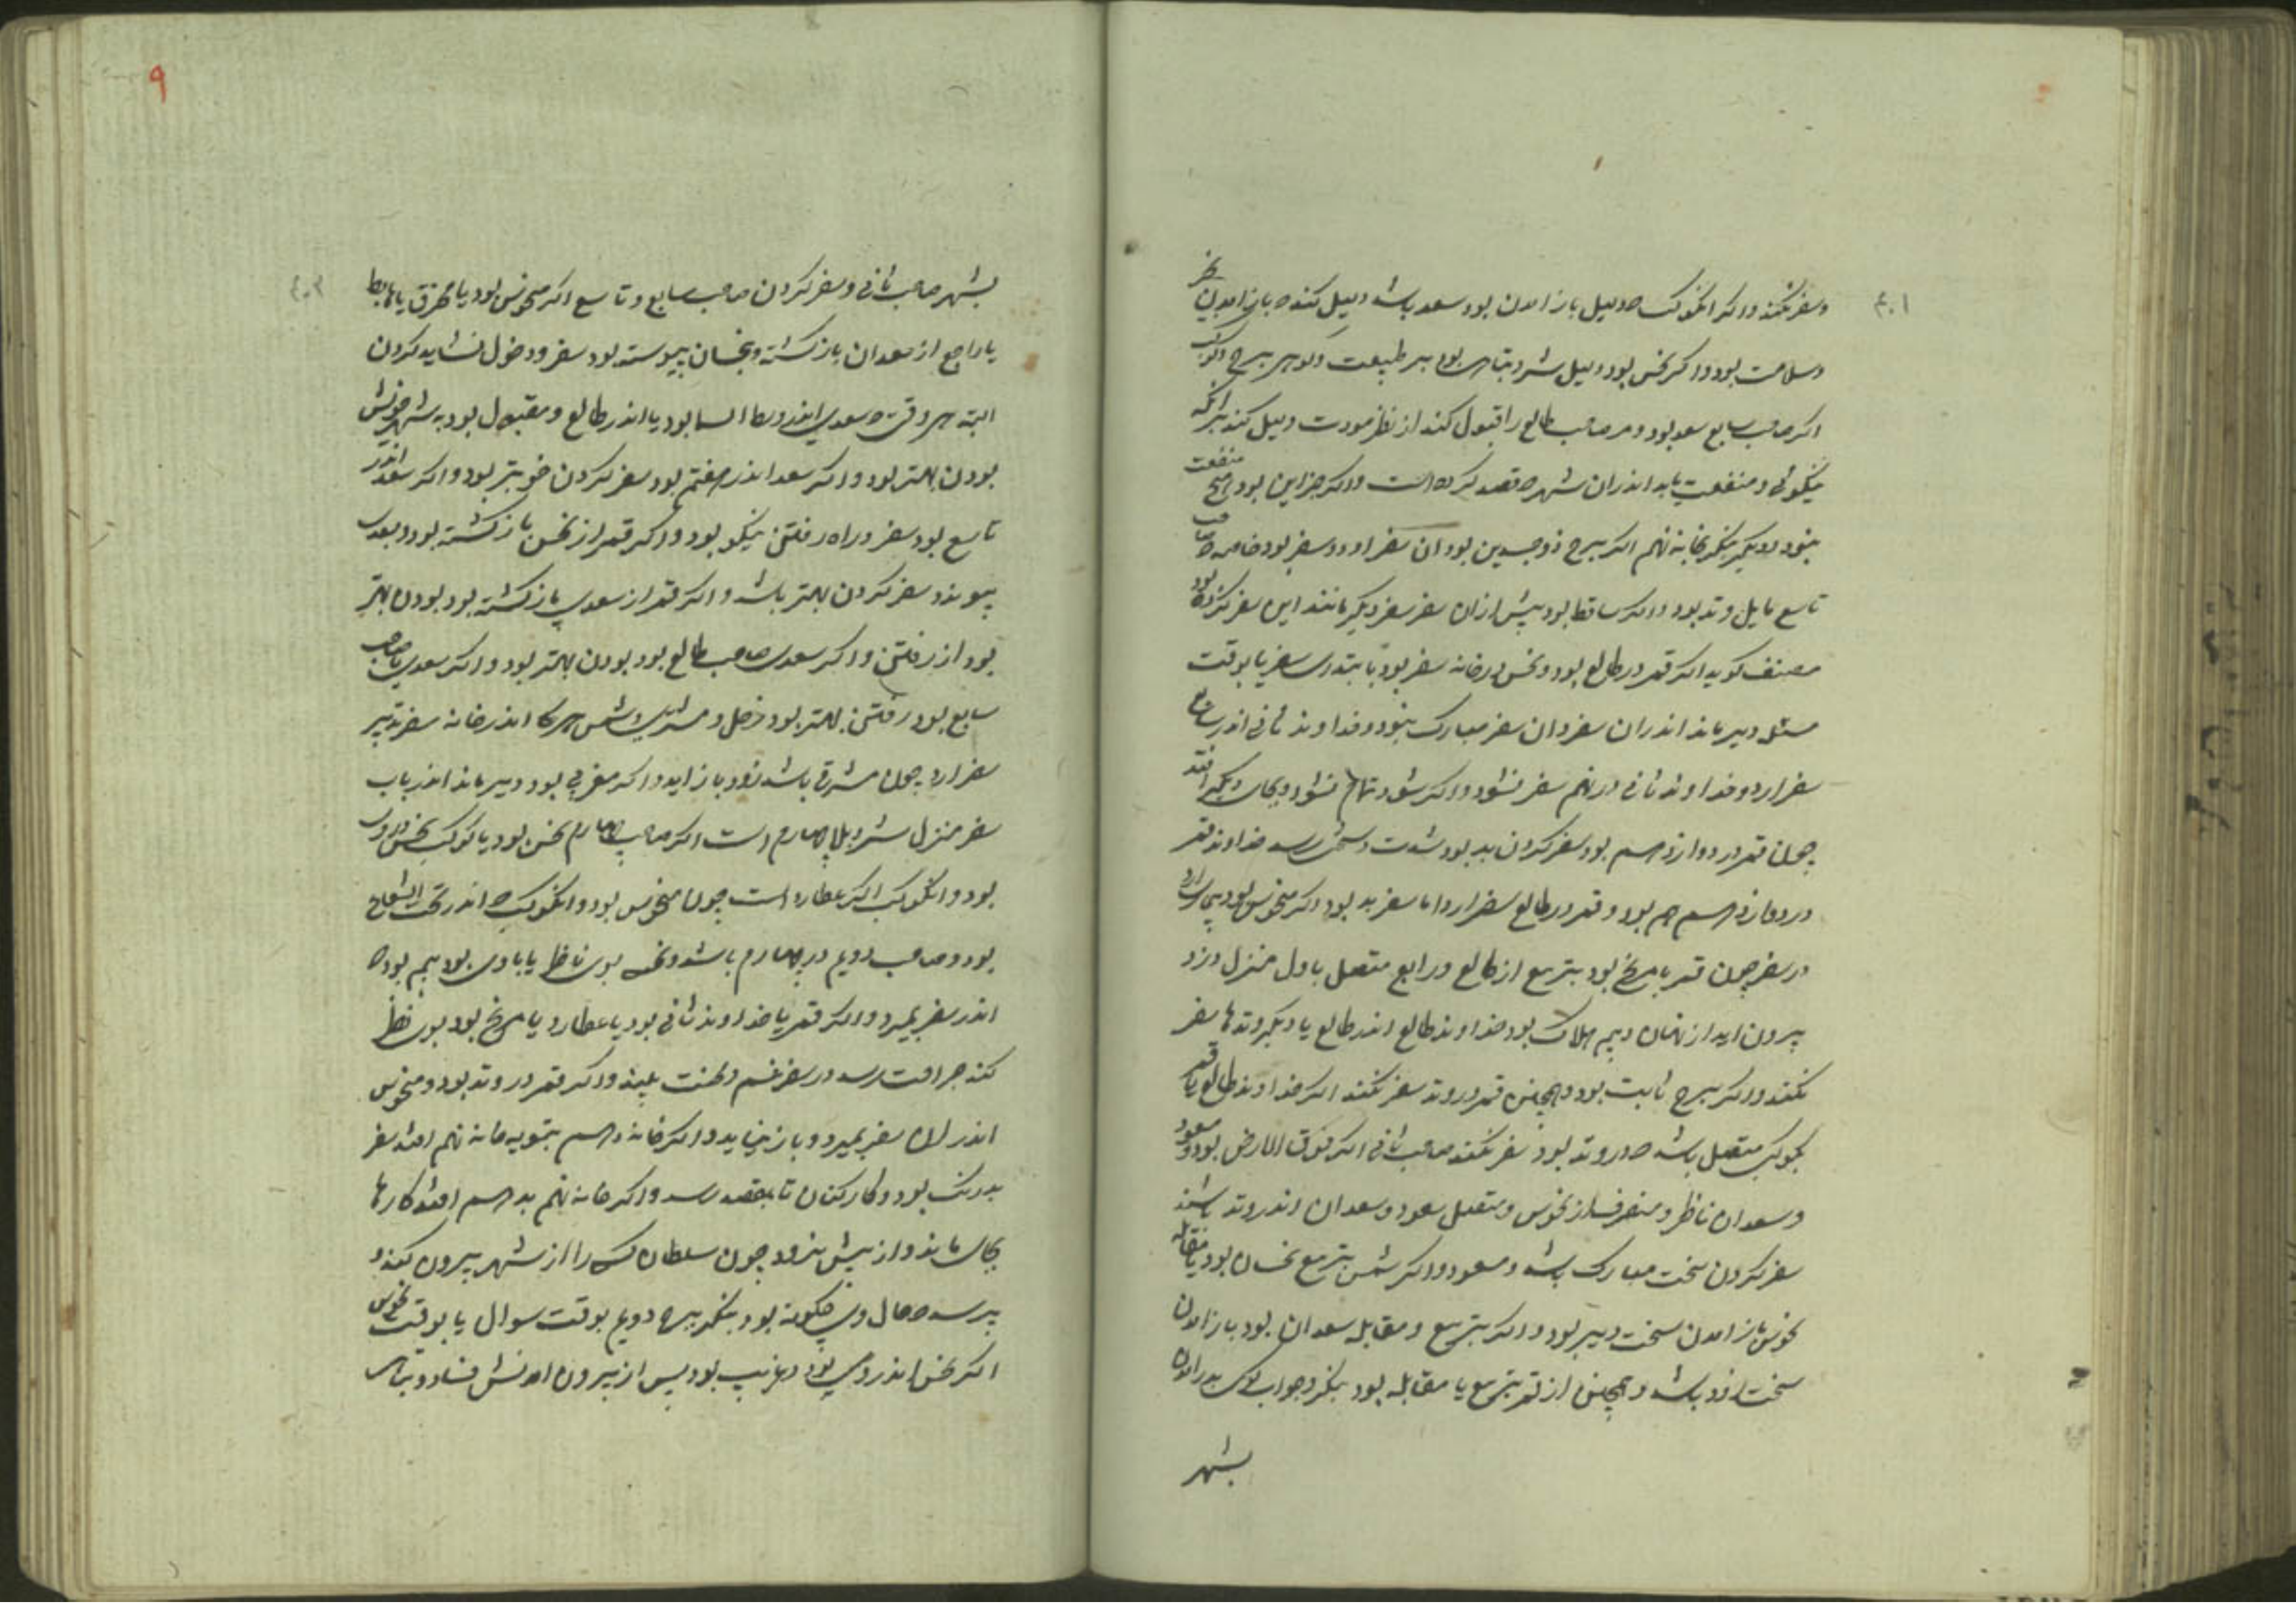 و سفر نکند و اکر انکوکب که دلیل باز امدن بود سعد باشد دلیل کند که باز امدن بخیر
و سلامت بود و اکر نحس بود دلیل شر و تباهی بود بر طبیعت و کوهر برج و کوکب
اکر صاحب سابع سعد بود و مر صاحب طالع را قبول کند از نظر مودت دلیل کند بر انکه
نیکوئی و منفعت یابد اندران شهر که قصد کرده است و اکر جز این بود هیچ منفعت
نبود و دیکر بنکر بخانه نهم اکر برج ذوجسدین بود ان سفر او دو سفر بود خاصه که صاحب
تاسع مایل وتد بود و اکر ساقط بود پیش ازان سفر سفر دیکر مانند این سفر کرده بود
مصنف کوید اکر قمر در طالع بود و نحس در خانه سفر بود بابتدای سفر یا بوقت
مسئله دیر ماند اندران سفر و ان سفر مبارک نبود و خداوند ثانی اندر سابع
سفر ارد و خداوند ثانی در نهم سفر نشود و اکر شود تمام نشود و بجای دیکر افتد
چون قمر در دوازدهم بود سفر کردن بد بود شدت و سختی رسد خداوند قمر
در دوازدهم هم بود و قمر در طالع سفر ارد اما سفر بد بود اکر منحوس بود
در سفر چون قمر با مریخ بود بتربیع از طالع و رابع متصل باول منزل دزد
بیرون اید از نهان و بیم هلاک بود خداوند طالع اندر طالع یا دیکر وتدها سفر
نکند و اکر برج ثابت بود و همچنین قمر در وتد سفر نکند اکر خداوند طالع یا قمر
بکوکبی متصل باشد که در وتد بود سفر نکند صاحب ثانی اکر فوق الارض بود و سعود
و سعدان ناظر و منصرف از نحوس و متصل سعود و سعدان اندر وتد باشند
سفر کردن سخت مبارک باشد و مسعود و اکر شمس بتربیع نحسان بود یا مقابله
نحوس باز امدن سخت دیر بود و اکر بتربیع و مقابله سعدان بود باز امدن
سخت زود باشد و همچنین از قمر بتربیع یا مقابله بود بنکر و جواب کوی بدر امدن
بشهر
بشهر صاحب ثانی و سفر کردن صاحب سابع و تاسع اکر منحوس بود یا محترق یا هابط
یا راجع از سعدان بازکشته و بنحسان پیوسته بود سفر و دخول نشاید کردن
البته هر وقتی که سعدی اندر وسط السما بود یا اندر طالع و مقبول بود به شهر خویش
بودن بهتر بود و اکر سعد اندر هفتم بود سفر کردن خوبتر بود و اکر سعد اندر
تاسع بود سفر و راه رفتن نیکو بود و اکر قمر از نحس بازکشته بود و بسعدی
پیوندد سفر کردن بهتر باشد و اکر قمر از سعدی بازکشته بود بودن بهتر
بود از رفتن و اکر سعدی صاحب طالع بود بودن بهتر بود و اکر سعدی صاحب
سابع بود رفتن بهتر بود زحل و مشتری و شمس هر کا اندر خانه سفر بتدبیر
سفر ارد چون مشرقی باشد زود باز اید و اکر مغربی بود دیر ماند اندر باب
سفر منزل شر و بلا چهارم است اکر صاحب چهارم نحس بود یا کوکب نحس در وی
بود و انکوکب اکر عطارد است چون منحوس بود و انکوکب که اندر تحت الشعاع
بود و صاحب دویم در چهارم باشد و نحسی بوی ناظر یا با وی بود بیم بود که
اندر سفر بمیرد و اکر قمر یا خداوند ثانی بود یا عطارد یا مریخ بود بوی نظر
کند جراحت رسد در سفر غم و محنت بیند و اکر قمر در وتد بود و منحوس
اندر ان سفر بمیرد و باز نیاید و اکر خانه دهم بتسویه خانه نهم افتد سفر
بدرنک بود و کارکنان تا بقصد رسد و اکر خانه نهم بدهم افتد کارها
بجای ماند و از پیش نرود چون سلطان کسی را از شهر بیرون کند و
پرسد که حال وی چکونه بود بنکر برج دویم بوقت سوال یا بوقت نحوس
اکر نحس اندر وی بود و غریب بود پس از بیرون امدنش فساد و تباهی